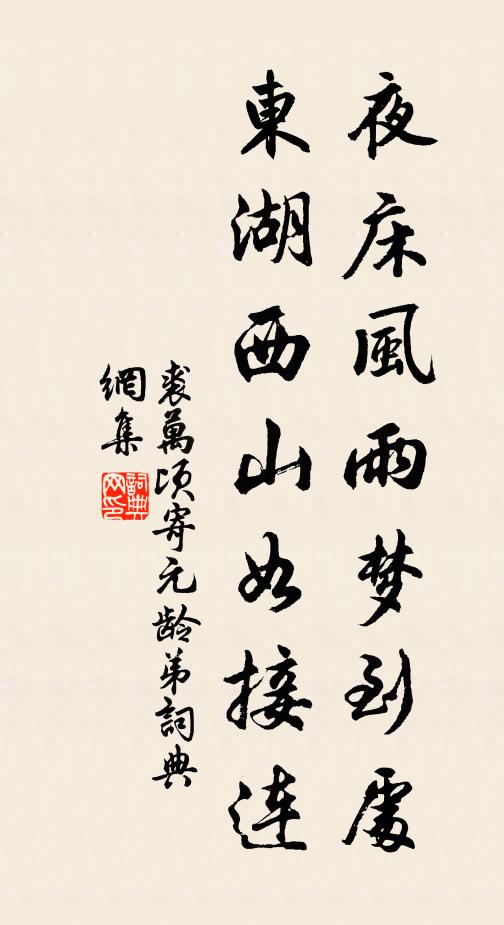 夜床風雨梦到處
東湖西山如接連
裘萬頃寄元龄弟詞典
網集
詞典網印